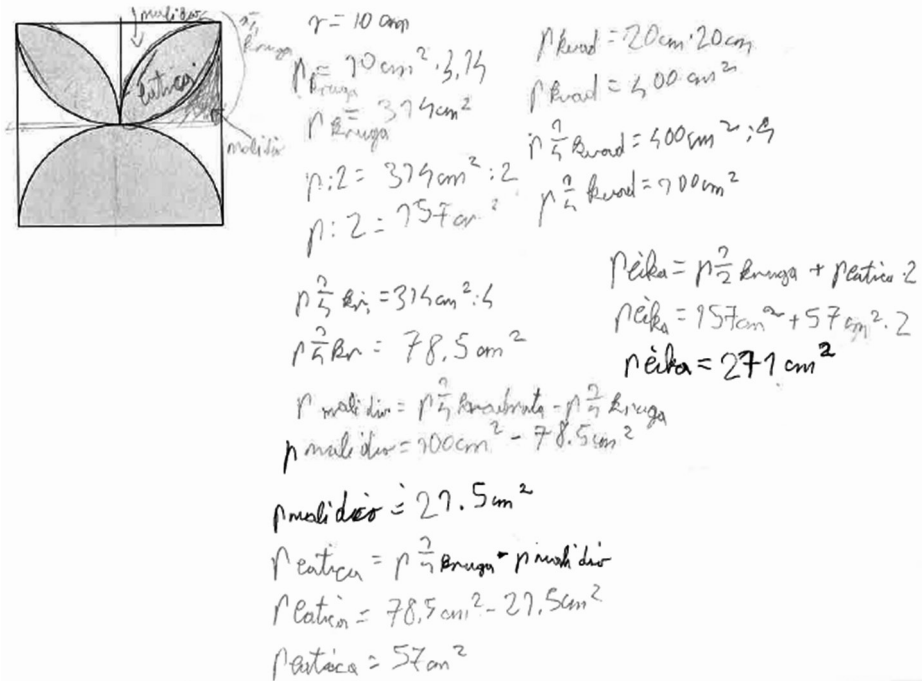 mali dio
1/4 kruga
latica
mali dio
r = 10 cm
p kruga = 10 cm² · 3,14
p kruga = 314 cm²
p : 2 = 314 cm² : 2
p : 2 = 157 cm²
p 1/4 kr. = 314 cm² : 4
p 1/4 kr = 78.5 cm²
p mali dio = p 1/4 kvadrata - p 1/4 kruga
p mali dio = 100 cm² - 78.5 cm²
p mali dio = 21.5 cm²
p latica = p 1/4 kruga - p mali dio
p latica = 78,5 cm² - 21,5 cm²
p latica = 57 cm²
p kvad = 20 cm · 20 cm
p kvad = 400 cm²
p 1/4 kvad = 400 cm² : 4
p 1/4 kvad = 100 cm²
p lika = p 1/2 kruga + p latica · 2
p lika = 157 cm² + 57 cm² · 2
p lika = 271 cm²